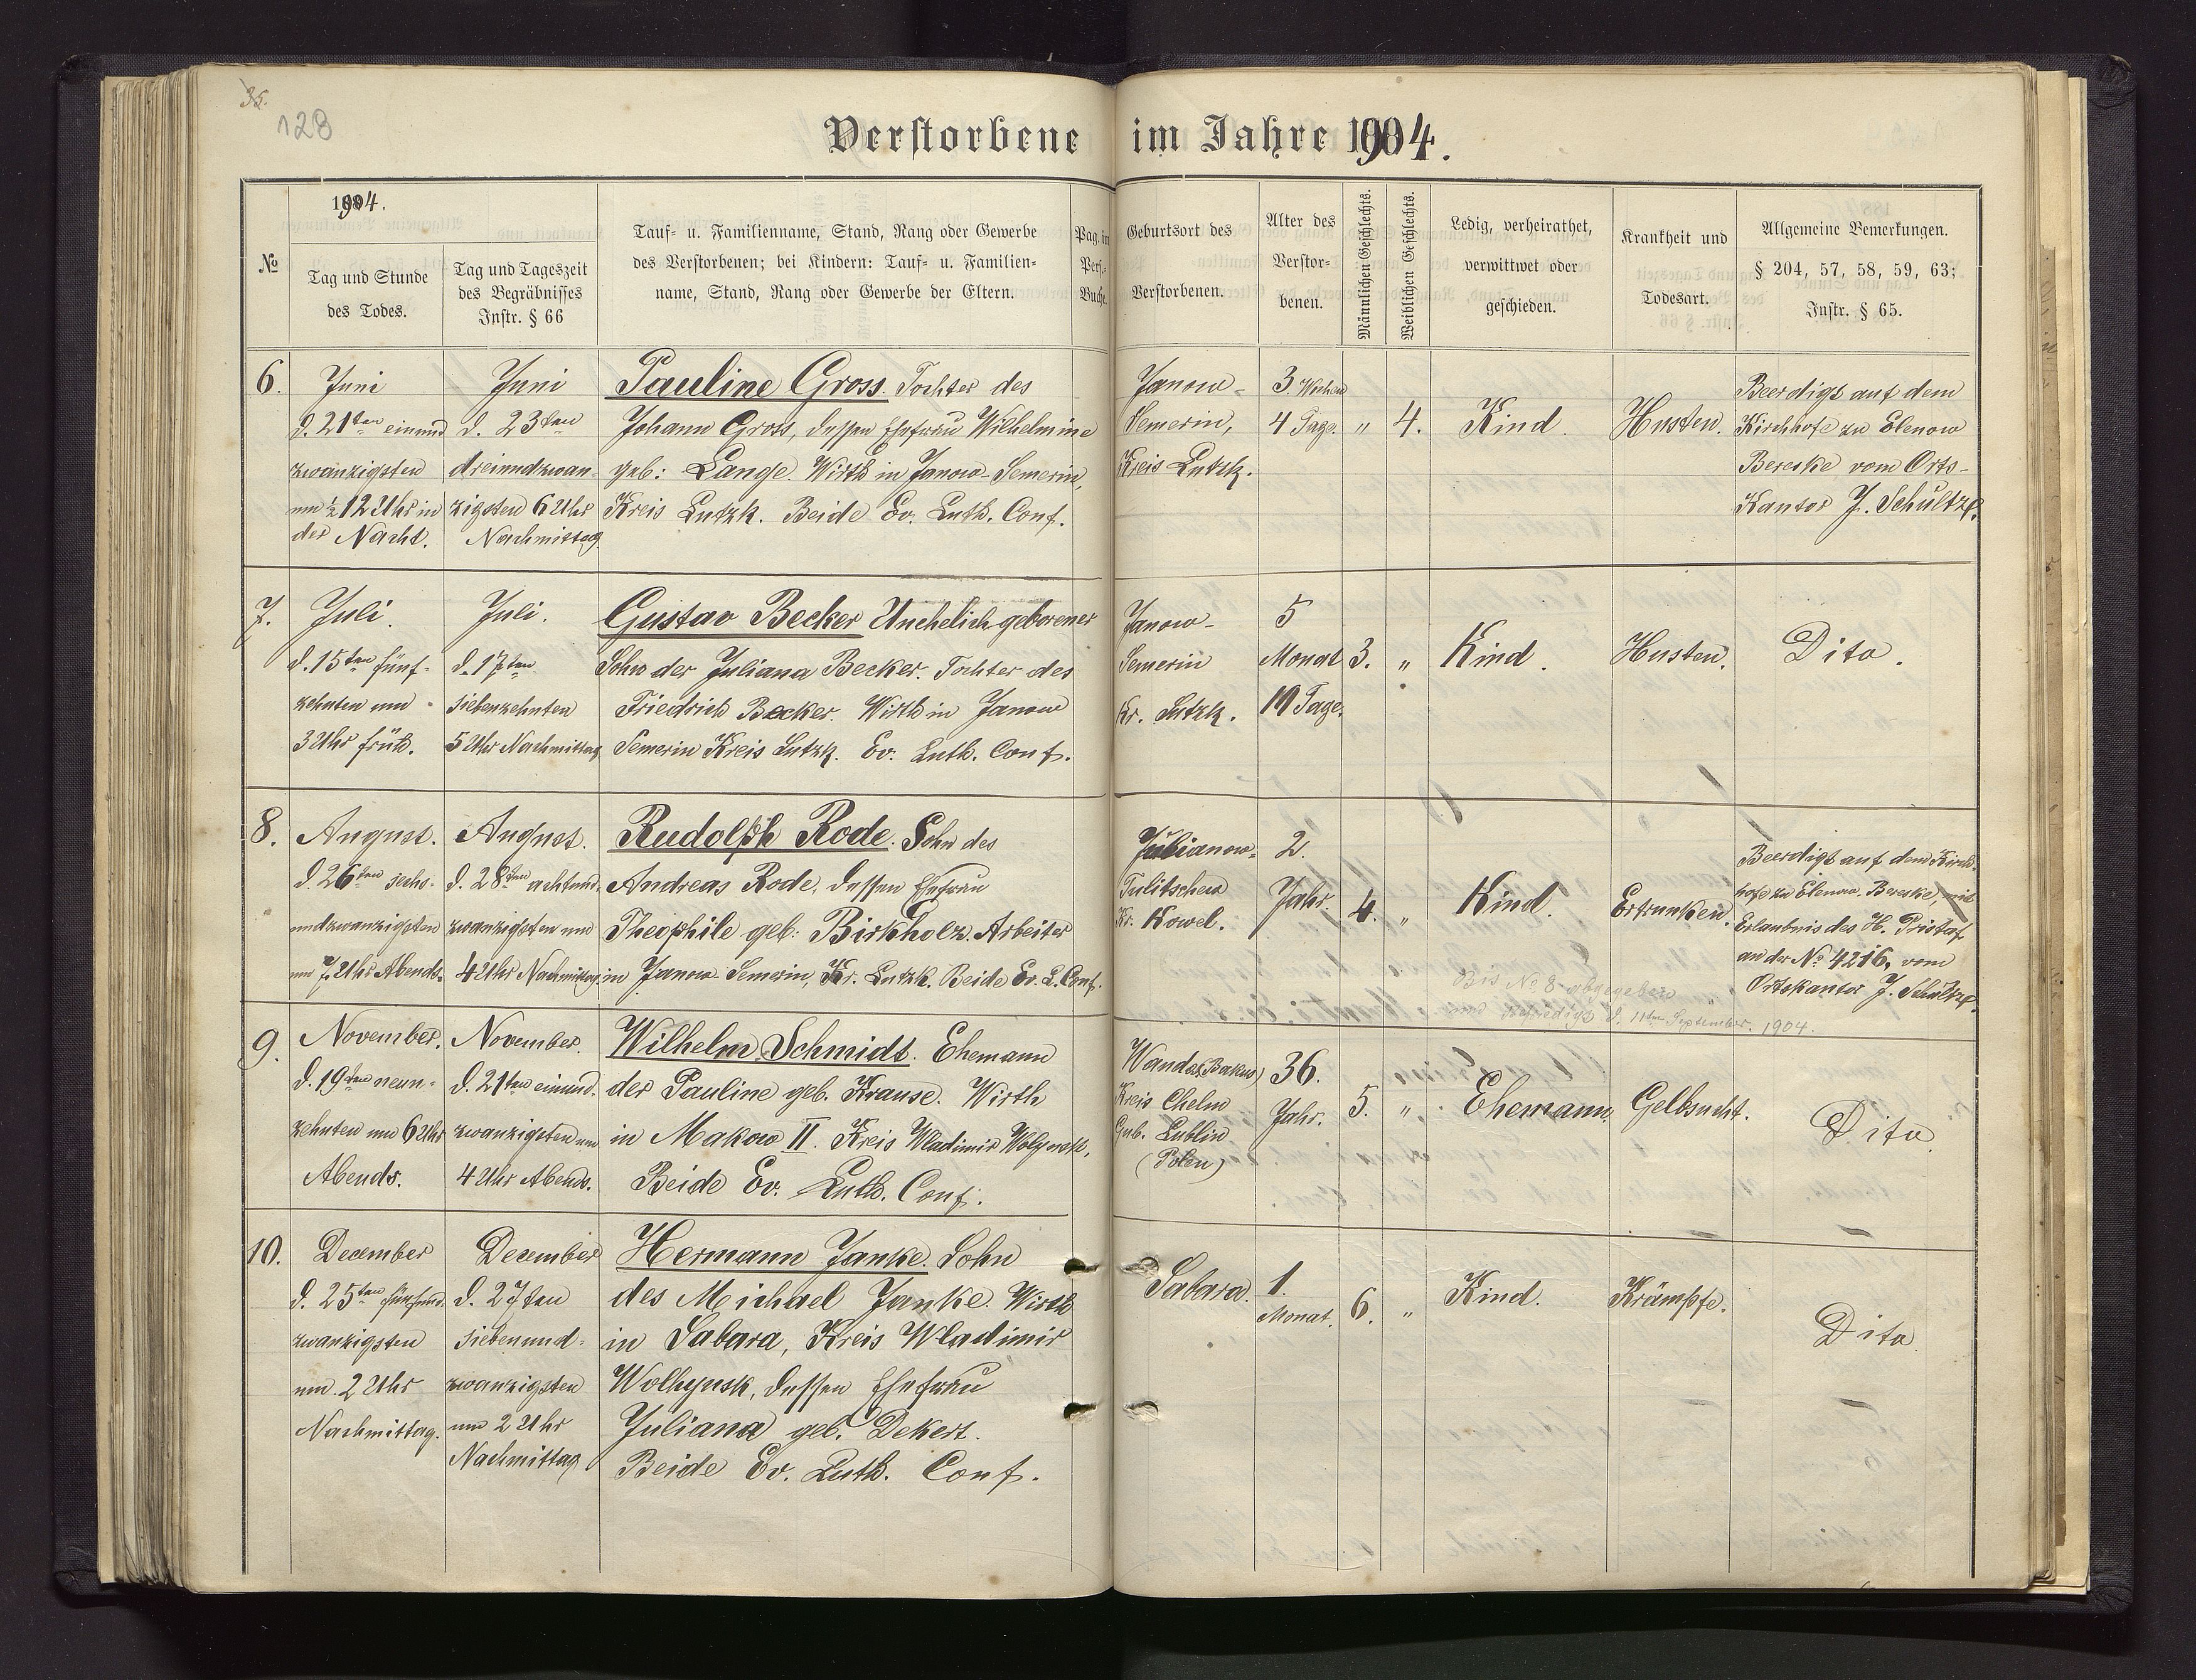 35.
128
Verstorbene im Jahre 1904.
№
1904.
Tag und Stunde
des Todes.
Tag und Tageszeit
des Begräbnisses
Instr. § 66
Tauf- u. Familienname, Stand, Rang oder Gewerbe
des Verstorbenen; bei Kindern: Tauf- u. Familien-
name, Stand, Rang oder Gewerbe der Eltern.
Pag. im
Pers.-
Buche.
Geburtsort des
Verstorbenen.
Alter des
Verstor-
benen.
Männlichen Geschlechts.
Weiblichen Geschlechts.
Ledig, verheirathet,
verwittwet oder
geschieden.
Krankheit und
Todesart.
Allgemeine Bemerkungen.
§ 204, 57, 58, 59, 63;
Instr. § 65.
6.
Juni
d. 21ten einund
zwanzigsten
um ½ 12 Uhr in
der Nacht.
Juni
d. 23ten
dreiundzwan-
zigsten 6 Uhr
Nachmittag
Pauline Gross. Tochter des
Johann Gross, dessen Ehefrau Wilhelmine
geb: Lange. Wirth in Janow-Semerin,
Kreis Lutzk. Beide Ev. Luth. Conf.
Janow-
Semerin,
Kreis Lutzk.
3. Wochen
4 Tage.
"
4.
Kind.
Husten.
Beerdigt auf dem
Kirchhofe zu Elenow
Bereske vom Orts-
Kantor J. Schultze.
7.
Juli.
d. 15ten fünf-
zehnten um
3 Uhr früh.
Juli.
d. 17ten
siebenzehnten
5 Uhr Nachmittag
Gustav Becker Unehelich geborener
Sohn der Juliana Becker. Tochter des
Friedrich Becker. Wirth in Janow
Semerin Kreis Lutzk. Ev. Luth. Conf.
Janow-
Semerin
Kr. Lutzk.
5
Monat
10 Tage.
3.
"
Kind.
Husten.
Dito.
8.
August.
d. 26ten sechs-
undzwanzigsten
um 7 Uhr Abends.
August.
d. 28ten achtund-
zwanzigsten um
4 Uhr Nachmittag.
Rudolph Rode. Sohn des
Andreas Rode, dessen Ehefrau
Theophile geb: Birkholz. Arbeiter
in Janow-Semerin, Kr. Lutzk. Beide Ev. L. Conf.
Julianow-
Tulitschew
Kr. Kowel.
2.
Jahr.
4.
"
Kind.
Ertrunken.
Beerdigt auf dem Kirch-
hofe zu Elenow. Bereske, mit
Erlaubnis des H. Pristaf
an der № 4216, vom
Ortskantor J. Schultze.
Bis № 8 abgegeben
und beerdigt d. 11ten September. 1904.
9.
November.
d. 19ten neun-
zehnten um 6 Uhr
Abends.
November.
d. 21ten einund-
zwanzigsten um
4 Uhr Abends.
Wilhelm Schmidt. Ehemann
der Pauline geb. Krause. Wirth
in Makow II. Kreis Wladimir Wolynsk.
Beide Ev. Luth. Conf.
Kreis Chelm
Gub. Lublin
(Polen)
36.
Jahr.
5.
"
Ehemann.
Gelbsucht.
Dito
10.
December
d. 25ten fünfund-
zwanzigsten
um 2 Uhr
Nachmittag.
December
d. 27ten
siebenund-
zwanzigsten
um 2 Uhr
Nachmittag
Hermann Janke. Sohn
des Michael Janke. Wirth
in Sabara, Kreis Wladimir
Wolhynsk, dessen Ehefrau
Juliana geb. Dekert.
Beide Ev. Luth. Conf.
Sabara.
1.
Monat.
6.
"
Kind.
Krämpfe.
Dito